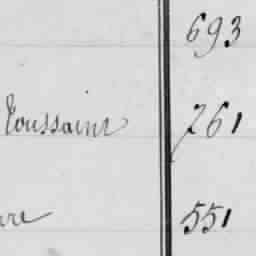 693
Toussaint 761
551